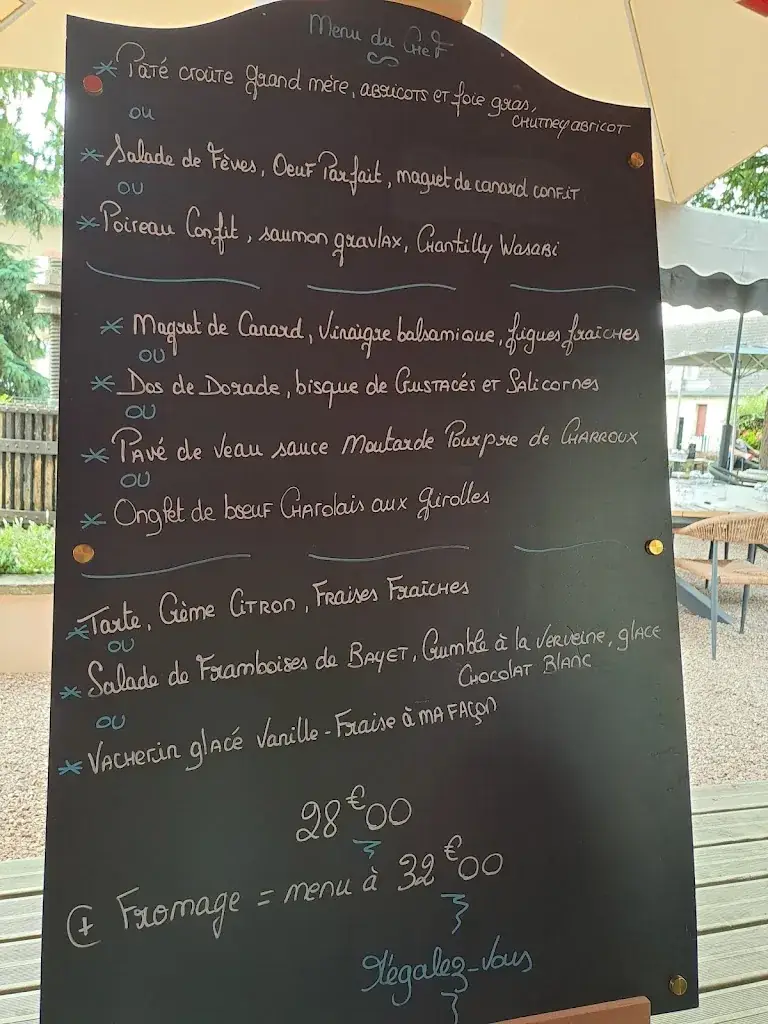 Menu du CHEF
* Pâté croûte Grand mère, abricots et foie gras,
CHUTNEY ABRICOT
ou
* Salade de Fèves, Oeuf Parfait, magret de canard confit
ou
* Poireau Confit, saumon gravlax, Chantilly Wasabi
* Magret de Canard, Vinaigre balsamique, figues fraîches
ou
* Dos de Dorade, bisque de Crustacés et Salicornes
ou
* Pavé de Veau sauce Moutarde Pourpre de CHARROUX
ou
* Onglet de bœuf CHArolais aux girolles
* Tarte, Crème Citron, Fraises Fraîches
ou
* Salade de Framboises de BAYET, Crumble à la verveine, glace
CHOCOLAT BLANC
ou
* VACHErin glacé Vanille - Fraise à MA FAÇON
28€00
+ Fromage = menu à 32€00
Régalez-Vous